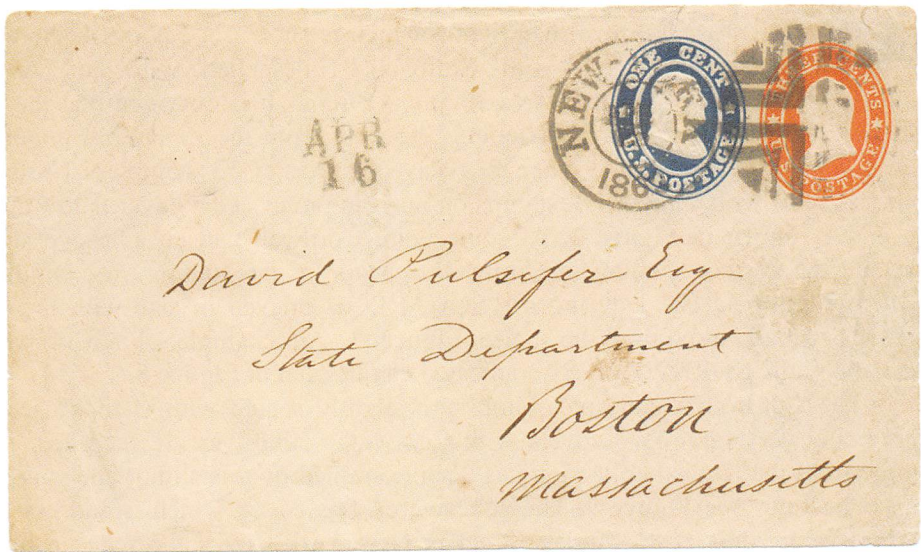 NEW-YORK
186
ONE CENT
U.S. POSTAGE
THREE CENTS
U.S. POSTAGE
APR
16
David Pulsifer Esq
State Department
Boston
Massachusetts